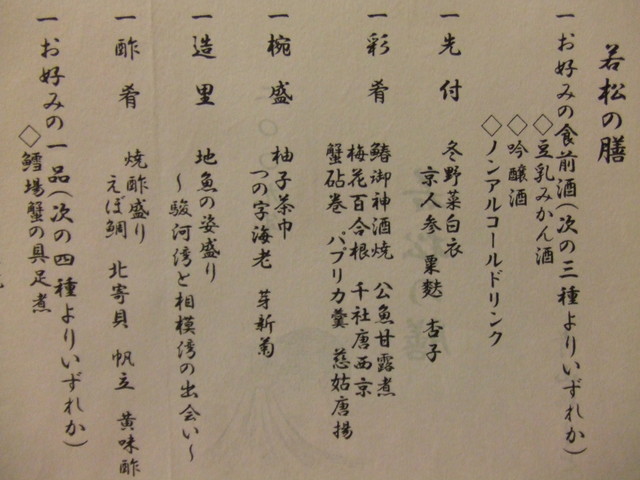 若松の膳
一お好みの食前酒(次の三種よりいずれか)
◇豆乳みかん酒
◇吟醸酒
◇ノンアルコールドリンク
一先付
冬野菜白衣
京人参 粟麩 杏子
一彩肴
鰆御神酒焼 公魚甘露煮
梅花百合根 千社唐西京
蟹砧巻 パプリカ羹 慈姑唐揚
一椀盛
柚子茶巾
つの字海老 芽新菊
一造里
地魚の姿盛り
~駿河湾と相模湾の出会い~
一酢肴
焼酢盛り
えぼ鯛 北寄貝 帆立 黄味酢
一お好みの一品(次の四種よりいずれか)
◇鱈場蟹の具足煮